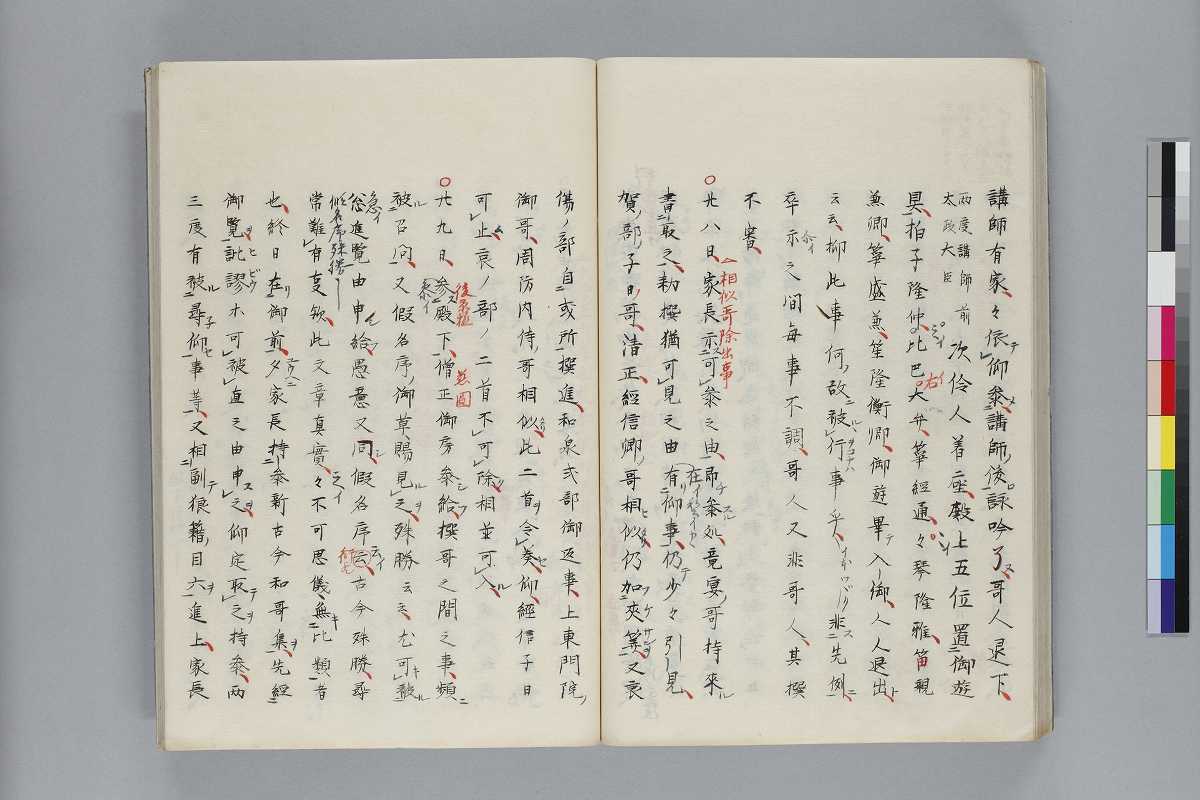 講師有家々依仰参講師後詠吟了哥人退下
両度講師前
太政大臣
次伶人着座殿上五位置御遊
具拍子隆仲比巴大弁篳経通々琴隆雅笛親
兼卿篳盛兼笙隆衡卿御遊畢入御人人退出
云云抑此事何故被行事乎非先例
卒示之間毎事不調哥人又非哥人其撰
不審
相似哥除出事
○廿八日家長示可参之由即参処竟宴哥持来
書取之勅撰猶可見之由有仰事仍少々引見
賀ノ部子日哥清正経信卿哥相似仍加夾筭又哀
傷ノ部自或所撰進和泉式部御返事上東門院
御哥周防内侍哥相似此二首令奏仰経信子日
可止哀ノ部ノ二首不可除相並可入
後京極
慈圓
○廿九日参殿下僧正御房参給撰哥之間之事頻
被召問又假名序御草賜見之殊勝云云尤可被
忩進覧由申給愚意又同假名序云古今殊勝尋
假名序殊勝
常難有事欤此文章真實々不可思儀無比類昔
也終日在御前夕家長持参新古今和哥集先経
御覧訛謬ホ可被直之由申之仰定取之持参両
三度有被尋仰事等又相副狼藉目六進上家長